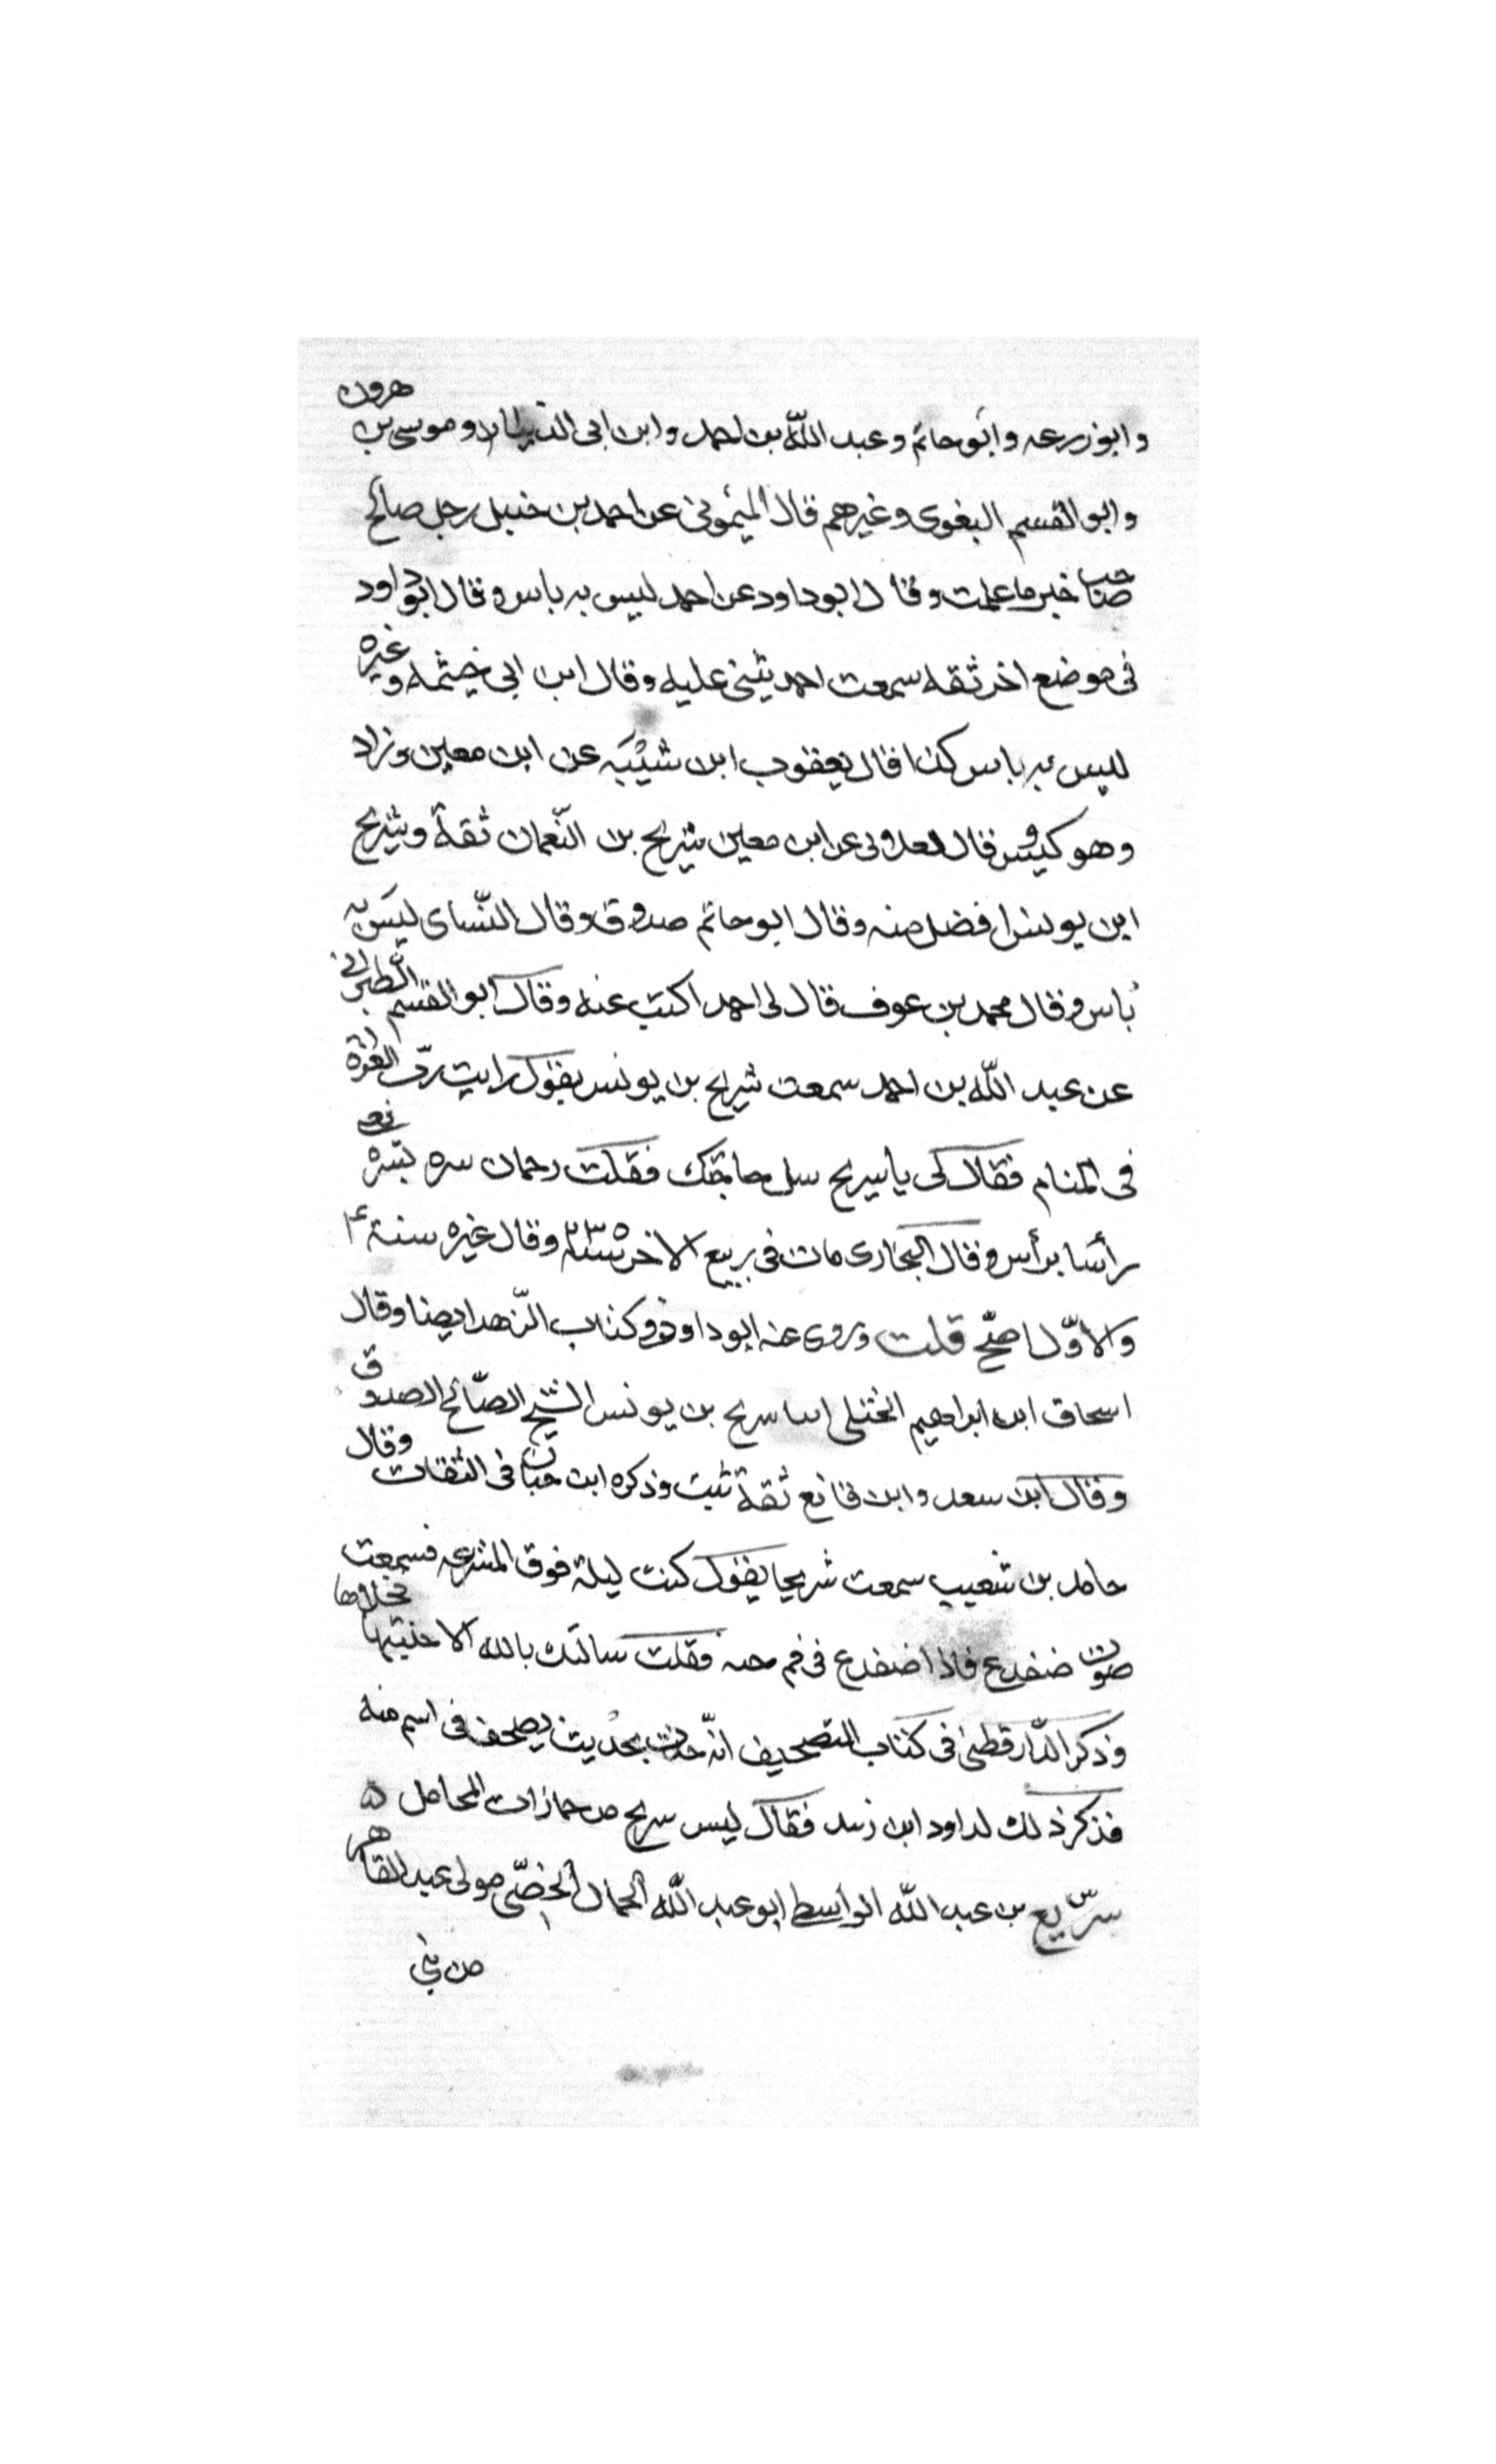 وابوزرعه وابوحاتم وعبد الله بن احمد وابن ابى الدنيا وموسى بن هرون
وابو القسم البغوى وغيرهم قال الميمونى عن احمد بن حنبل رجل صالح
صاحب خير ما علمت وقال ابو داود عن احمد ليس به باس وقال ابو داود
فى موضع اخر ثقه سمعت احمد يثنى عليه وقال ابن ابى خيثمه وغيره
ليس به باس كذا قال يعقوب ابن شيبه عن ابن معين وزاد
وهو كيس وقال عن ابن معين شريح بن النّعمان ثقة وشريح
ابن يونس افضل منه وقال ابو حاتم صدوق وقال النّساى ليس به
باس وقال محمد بن عوف قال لى احمد اكتب عنه وقال ابو القسم الطبرانى
عن عبد الله بن احمد سمعت شريح بن يونس يقول رايت ربّ العزة
فى المنام فقال لى يا سريح سل حاجتك فقلت رحمان سره بسره يعنى
رأسا برأس وقال البخارى مات فى ربيع الاخر سنة ٢٣٥ وقال غيره سنة ٤
والاوّل اصحّ قلت وروى عنه ابو داود فى كتاب الزّهد ايضا وقال
اسحاق ابن ابراهيم الختلى سريح بن يونس الشيخ الصّالح الصدوق
وقال ابن سعد وابن قانع ثقة ثبت وذكره ابن حبان فى الثقات وقال
حامد بن شعيب سمعت شريحا يقول كنت ليلة فوق المشرعه فسمعت
صوت ضفدع فاذا ضفدع فى فم حيه فقلت سالتك بالله الا خليتها فخلاها
وذكر الدّارقطنى فى كتاب التصحيف انّه حدث بحديث يصحف فى اسم منه
فذكر ذلك لداود ابن رشيد فقال ليس سريح من جمازات المحامل ه
سرّيع بن عبد الله الواسطى ابو عبد الله الجمال الخصّى مولى عبد القاهر
من بنى